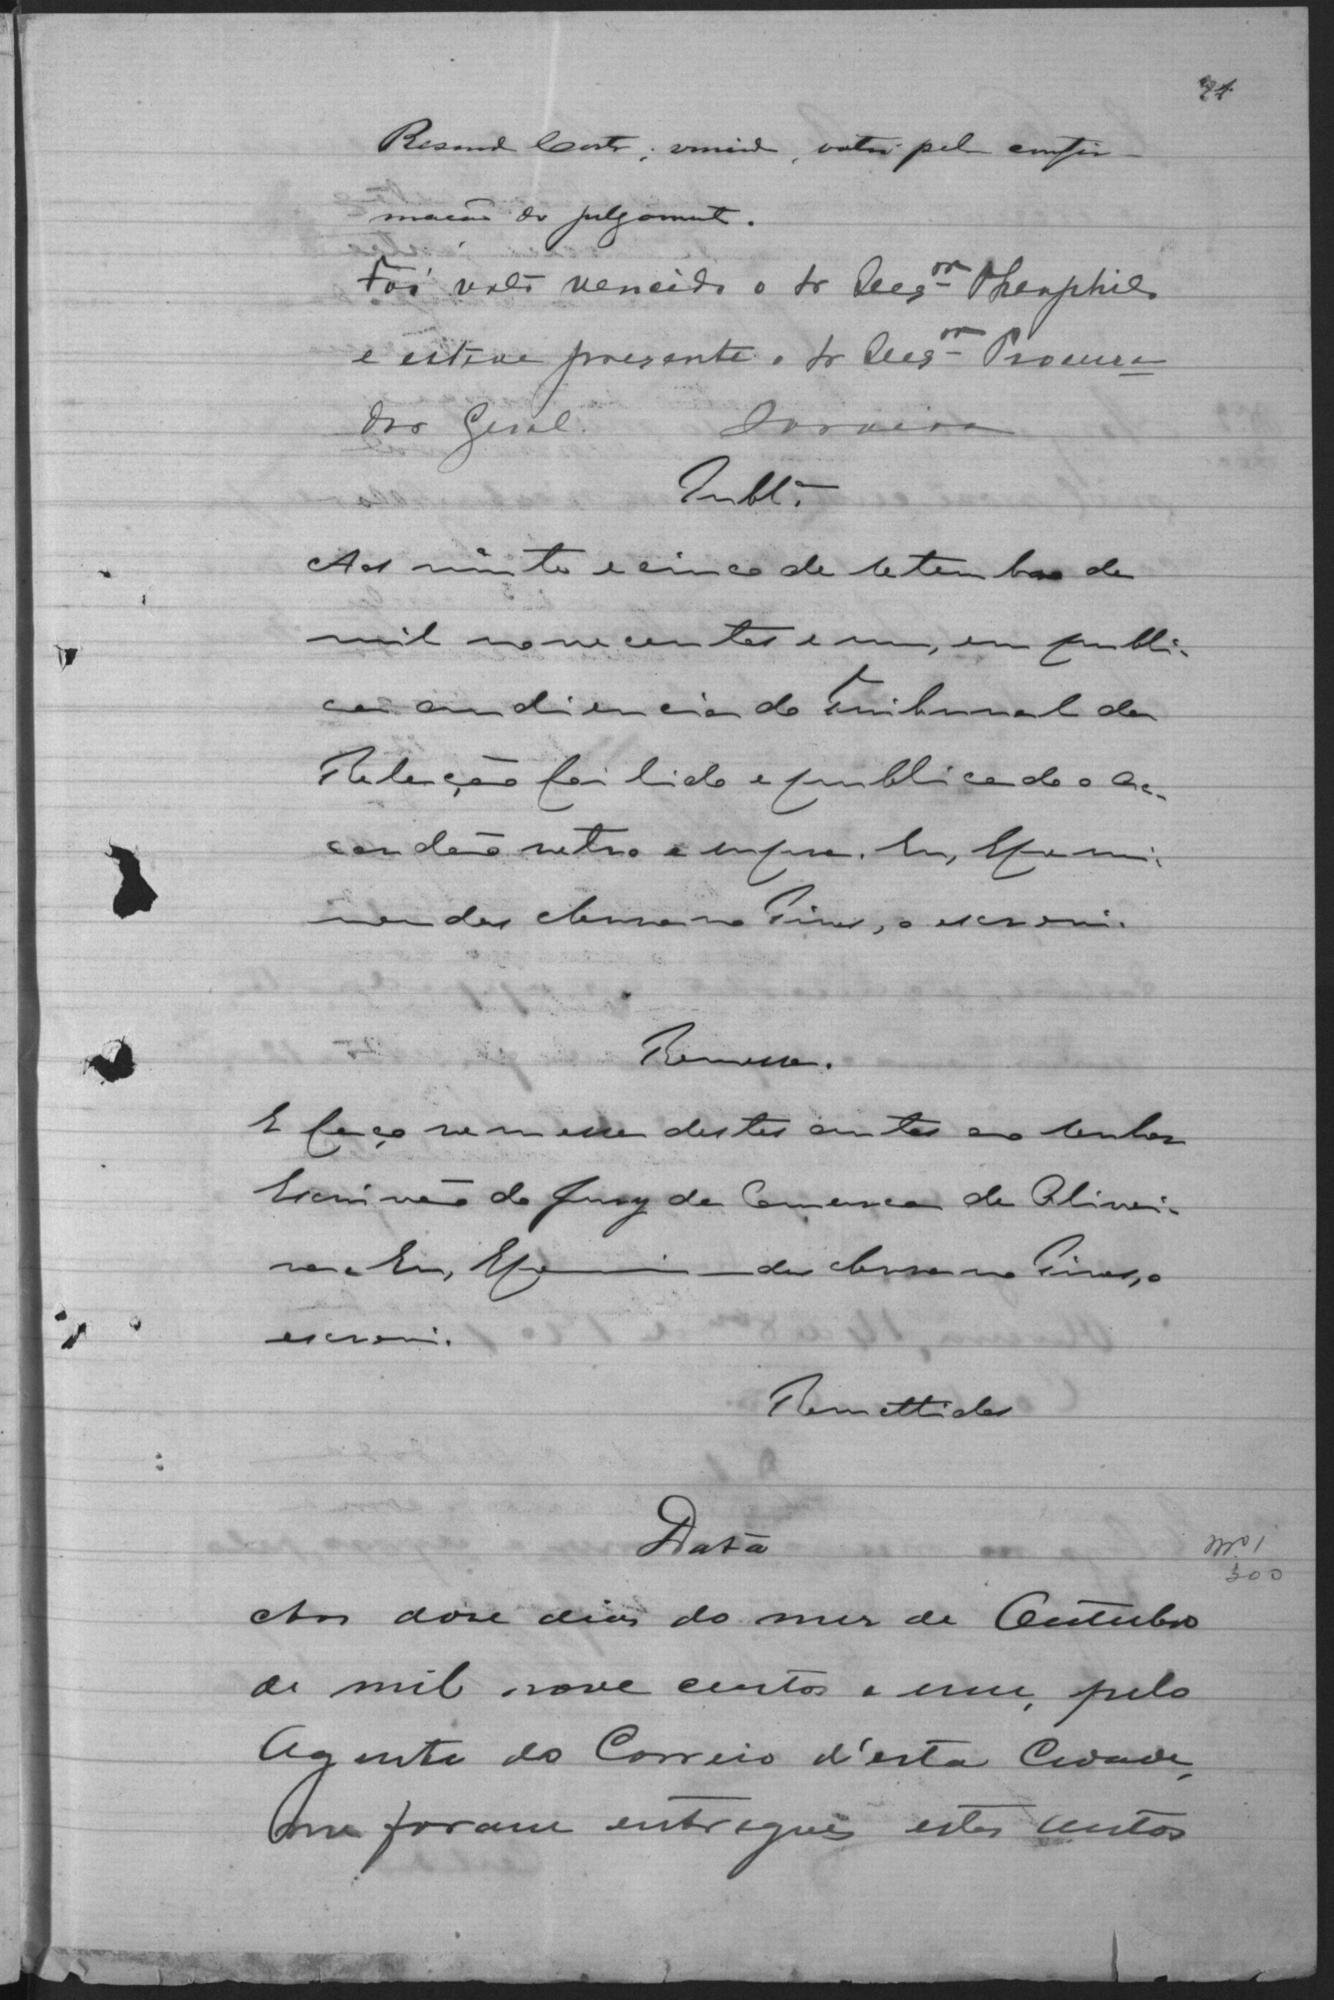 Resende Costa, vencido, votei pela confir-
mação do julgamento.
Foi voto vencido o Sr Des.or Theophilo
e esteve presente o Sr Des.or Procura-
dor Geral. Saraiva
Publ.m
Aos vinte e cinco de setembro de
mil novecentos e um, em publi-
ca audiencia do Tribunal da
Relação foi lido e publicado o ac-
cordão retro e supra. Eu, Epami-
nondas Pires, o escrevi.
Remessa.
E faço remessa destes autos ao senhor
Escrivão do Jury da Comarca de Olivei-
ra. Eu, Epaminondas Pires, o
escrevi.
Remettidos
Data
Aos dose dias do mez de Outubro
de mil nove centos e um, pelo
Agente do Correio d'esta Cidade,
me foram entregues estes autos
300